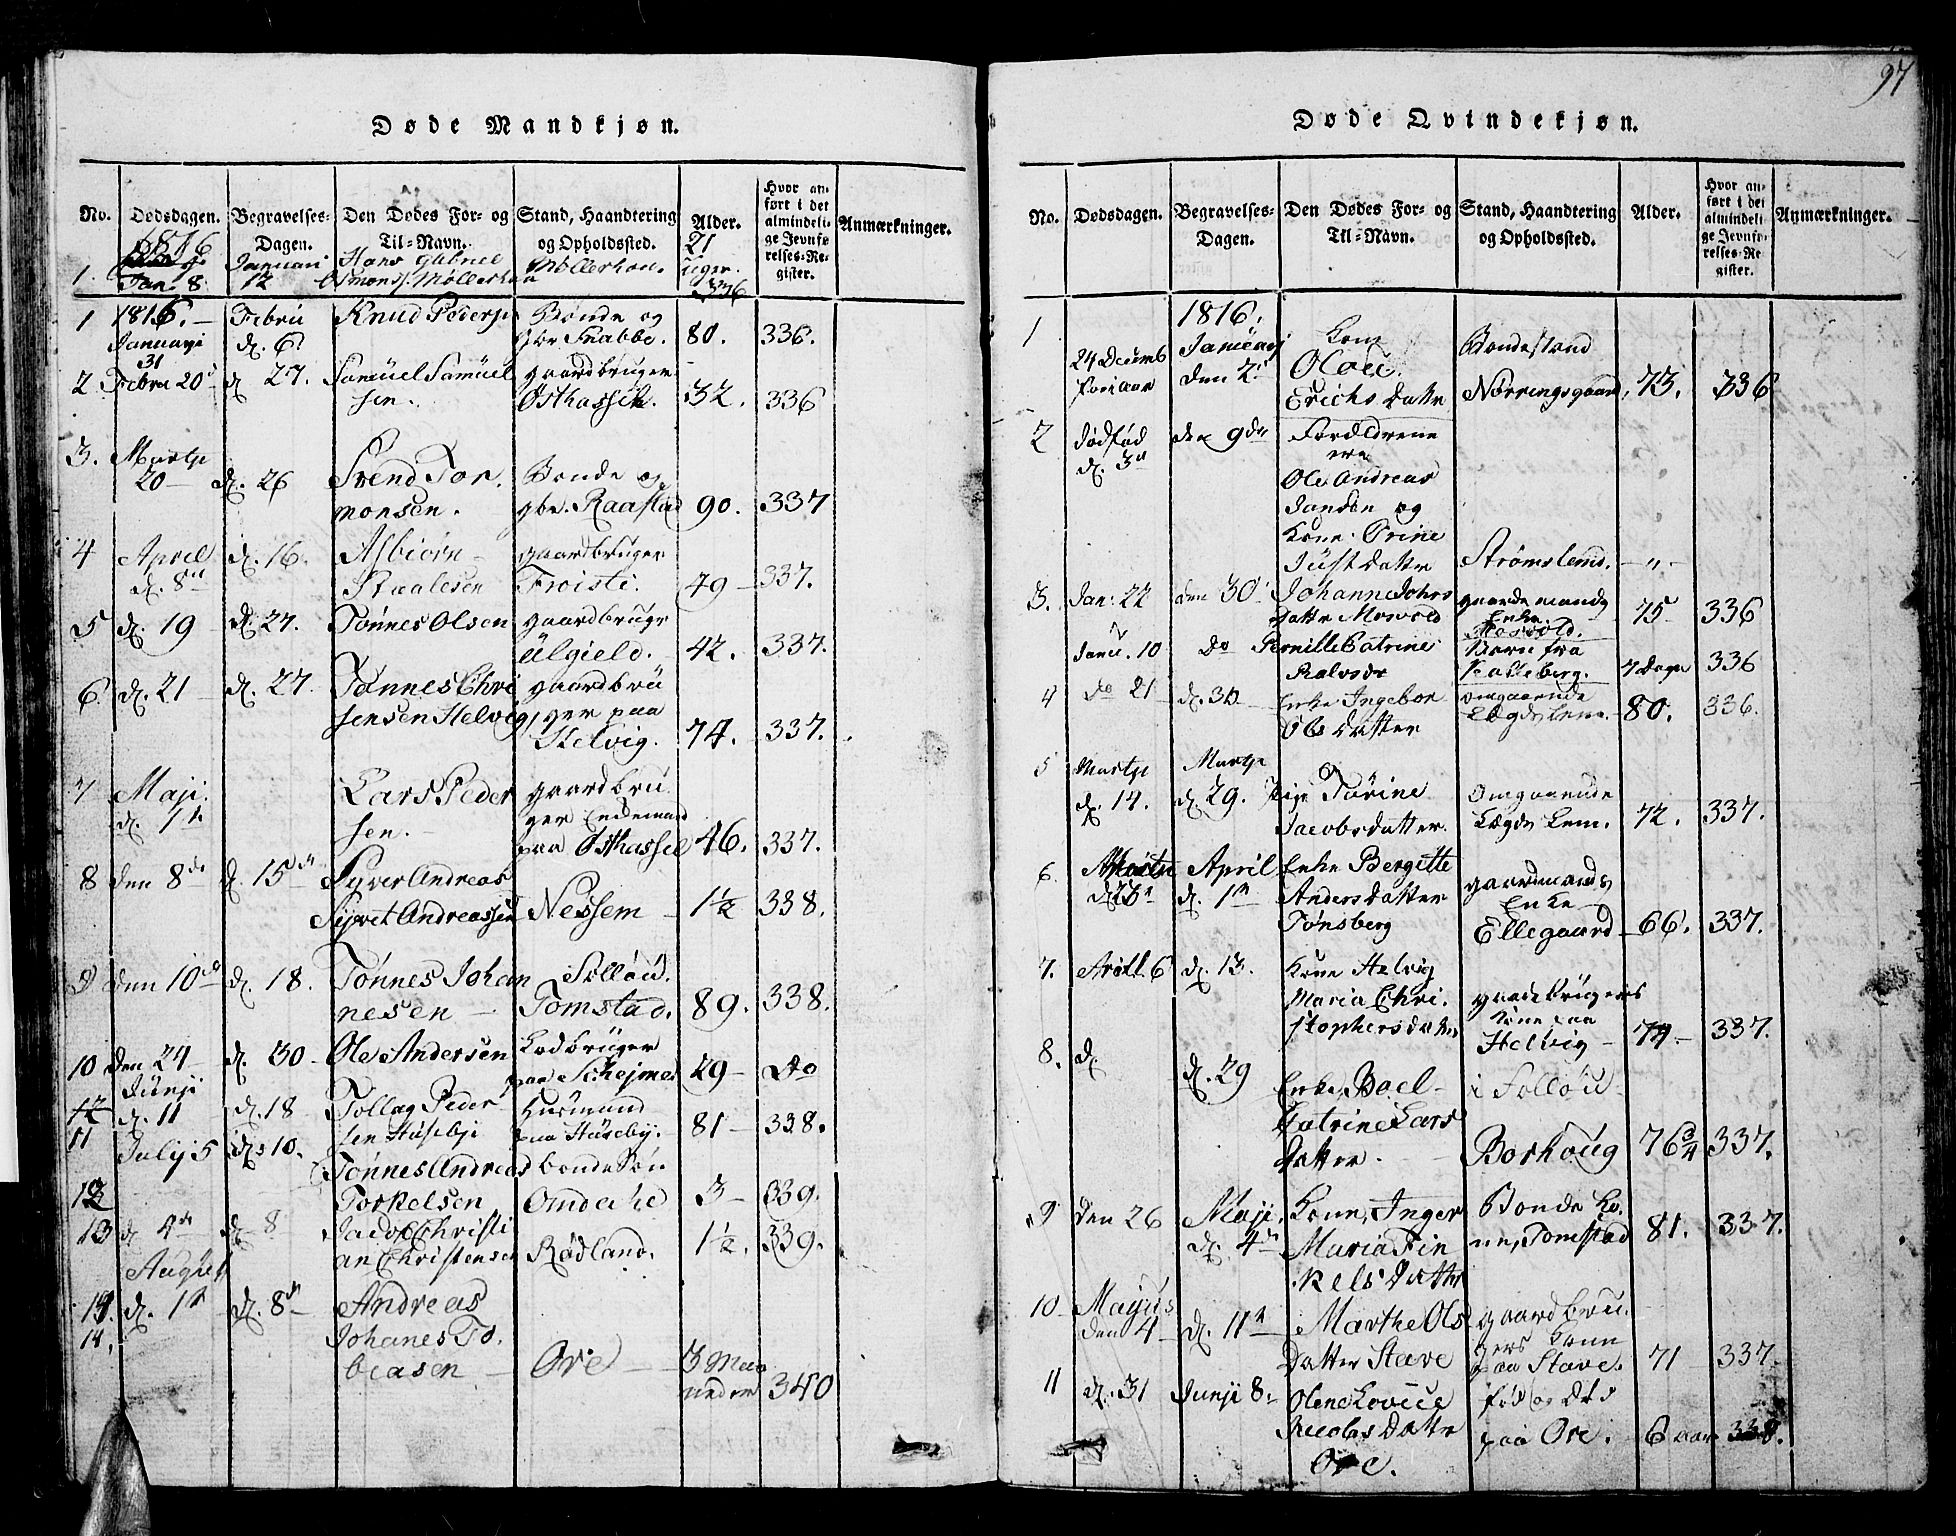 97
Døde Mandkjøn.
No. Dødsdagen. Begravelses-Dagen. Den Dødes For- og Til-Navn. Stand, Haandtering og Opholdssted. Alder. Hvor anført i det almindelige Jevnførelses-Register. Anmærkninger.
1. 1816 Jan 8 Januari 12 Hans Gabriel Osmons. Møllerhau Møllerhau. 21 uger. 336
1 1816. Januari 31 Febru d. 6. Knud Peders Bonde og gbr. Snabbe. 80. 336.
2. Febru 20 d. 27. Samuel Samuel
sen. gaardbruger Østhassel. 32. 336
3. Marty 20 d. 26 Svend Tor
monsen. Bonde og gbr. Raastad 90. 337
4 April d. 8 d. 16. Asbiørn
Staalesen gaardbruger Froisti. 49 337.
5 d. 19 d. 27. Tønnes Olsen gaardbruger Ulgield. 42. 337.
6. d. 21 d. 27. Tønnes Chri
stensen Helvig gaardbru
ger paa
Helvig. 74. 337.
7 Maji. d. 1 Lars Peder
sen. gaardbru
ger Enkemand
paa Østhassel 46. 337.
8 den 8de d. 15 Syver Andreas
Syvert Andreassen Nessem 1½ 338.
9 den 10 d. 18. Tønnes Johan
nesen Follóu. Tomstad. 89. 338.
10 den 24 d. 30 Ole Andersen Lodbruger paa Skejmes 29 do
11 Junji d. 11 d. 18 Tollag Peder
sen Huseby Husmand paa Huseby. 81 338.
12 July 5 d. 10. Tønnes Andreas
Torkelsen bonde Søn Omdahl 3 339.
13 d. 4de d. 8 Jacob Christi
an Christensen Rødland. 1½. 339.
14. August d. 1 d. 8 Andreas
Johanes To
biasen Ore 3 Maa
neder 340
Døde Qvindekjøn.
No. Dødsdagen. Begravelses-Dagen. Den Dødes For- og Til-Navn. Stand, Haandtering og Opholdssted. Alder. Hvor anført i det almindelige Jevnførelses-Register. Anmærkninger.
1 24 Decemb forriaar 1816. Januarj den 2. Kone Olou
Erichs datter Bondestand
Nørringsgaard, 73. 336
2 dødfød d. 3 den 9de Forældrene
ere
Ole Andreas
Janden og
Kone. Orine
Just datter Strømsland. — „ —
3. Jan. 22 den 30 Johanne Johns
datter Mosvold gaardmands
Enke
Mosvold. 75 336
Janu. 10 do Pernille Catrine
Ralvsdr Barn fra
Kalleberg. 7 Dage 336
4 do 21 d. 30. Enke Ingebor
Ols datter omgaaende
Lægds Lem. 80. 336.
5 Marty d. 14. Marty d. 29. Pige Torine
Jacobsdatter. Omgaaende
Lægds Lem. 72. 337.
6. April d. 1 Enke Bergitte
Andersdatter
Tønsberg gaardmands
Enke
Ellegaard 66. 337.
7. April. 6 d. 13. Kone Helvig
Maria Chri
stophersdatter gaardbrugers
Kone paa
Helvig 74 337.
8. d. d. 29 Enke, Boel
Catrine Lars
datter. i Follóu
Borhoug 76¾ 337.
9 den 26 Maji. d. 4 Kone, Inger
Maria Fin
kels datter Bonde Ko
ne, Tomstad 81. 337.
10 Mayus den 4 d. 11 Marthe Ols
datter Stave gaardbru
gers Kone
paa Stave. 71 337.
11 d. 31 Junji 8. Olene Lovise
Nicolas datter
Ore. fød og død
paa Ore. 6 aar 338.